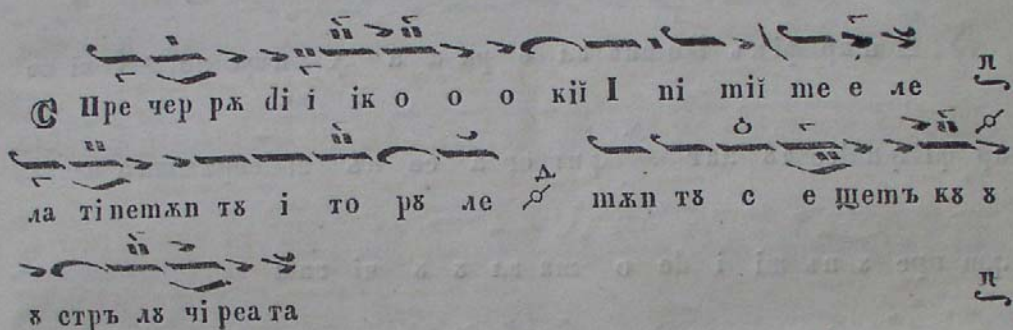 С Пре чер рѫ dі і ік о о о кії І пі тїї те е ле п
ла ті пе тѫп тȣ і то рȣ ле Д тѫп тȣ с е щетъ кȣ ȣ
ȣ стръ лȣ чі реа та п